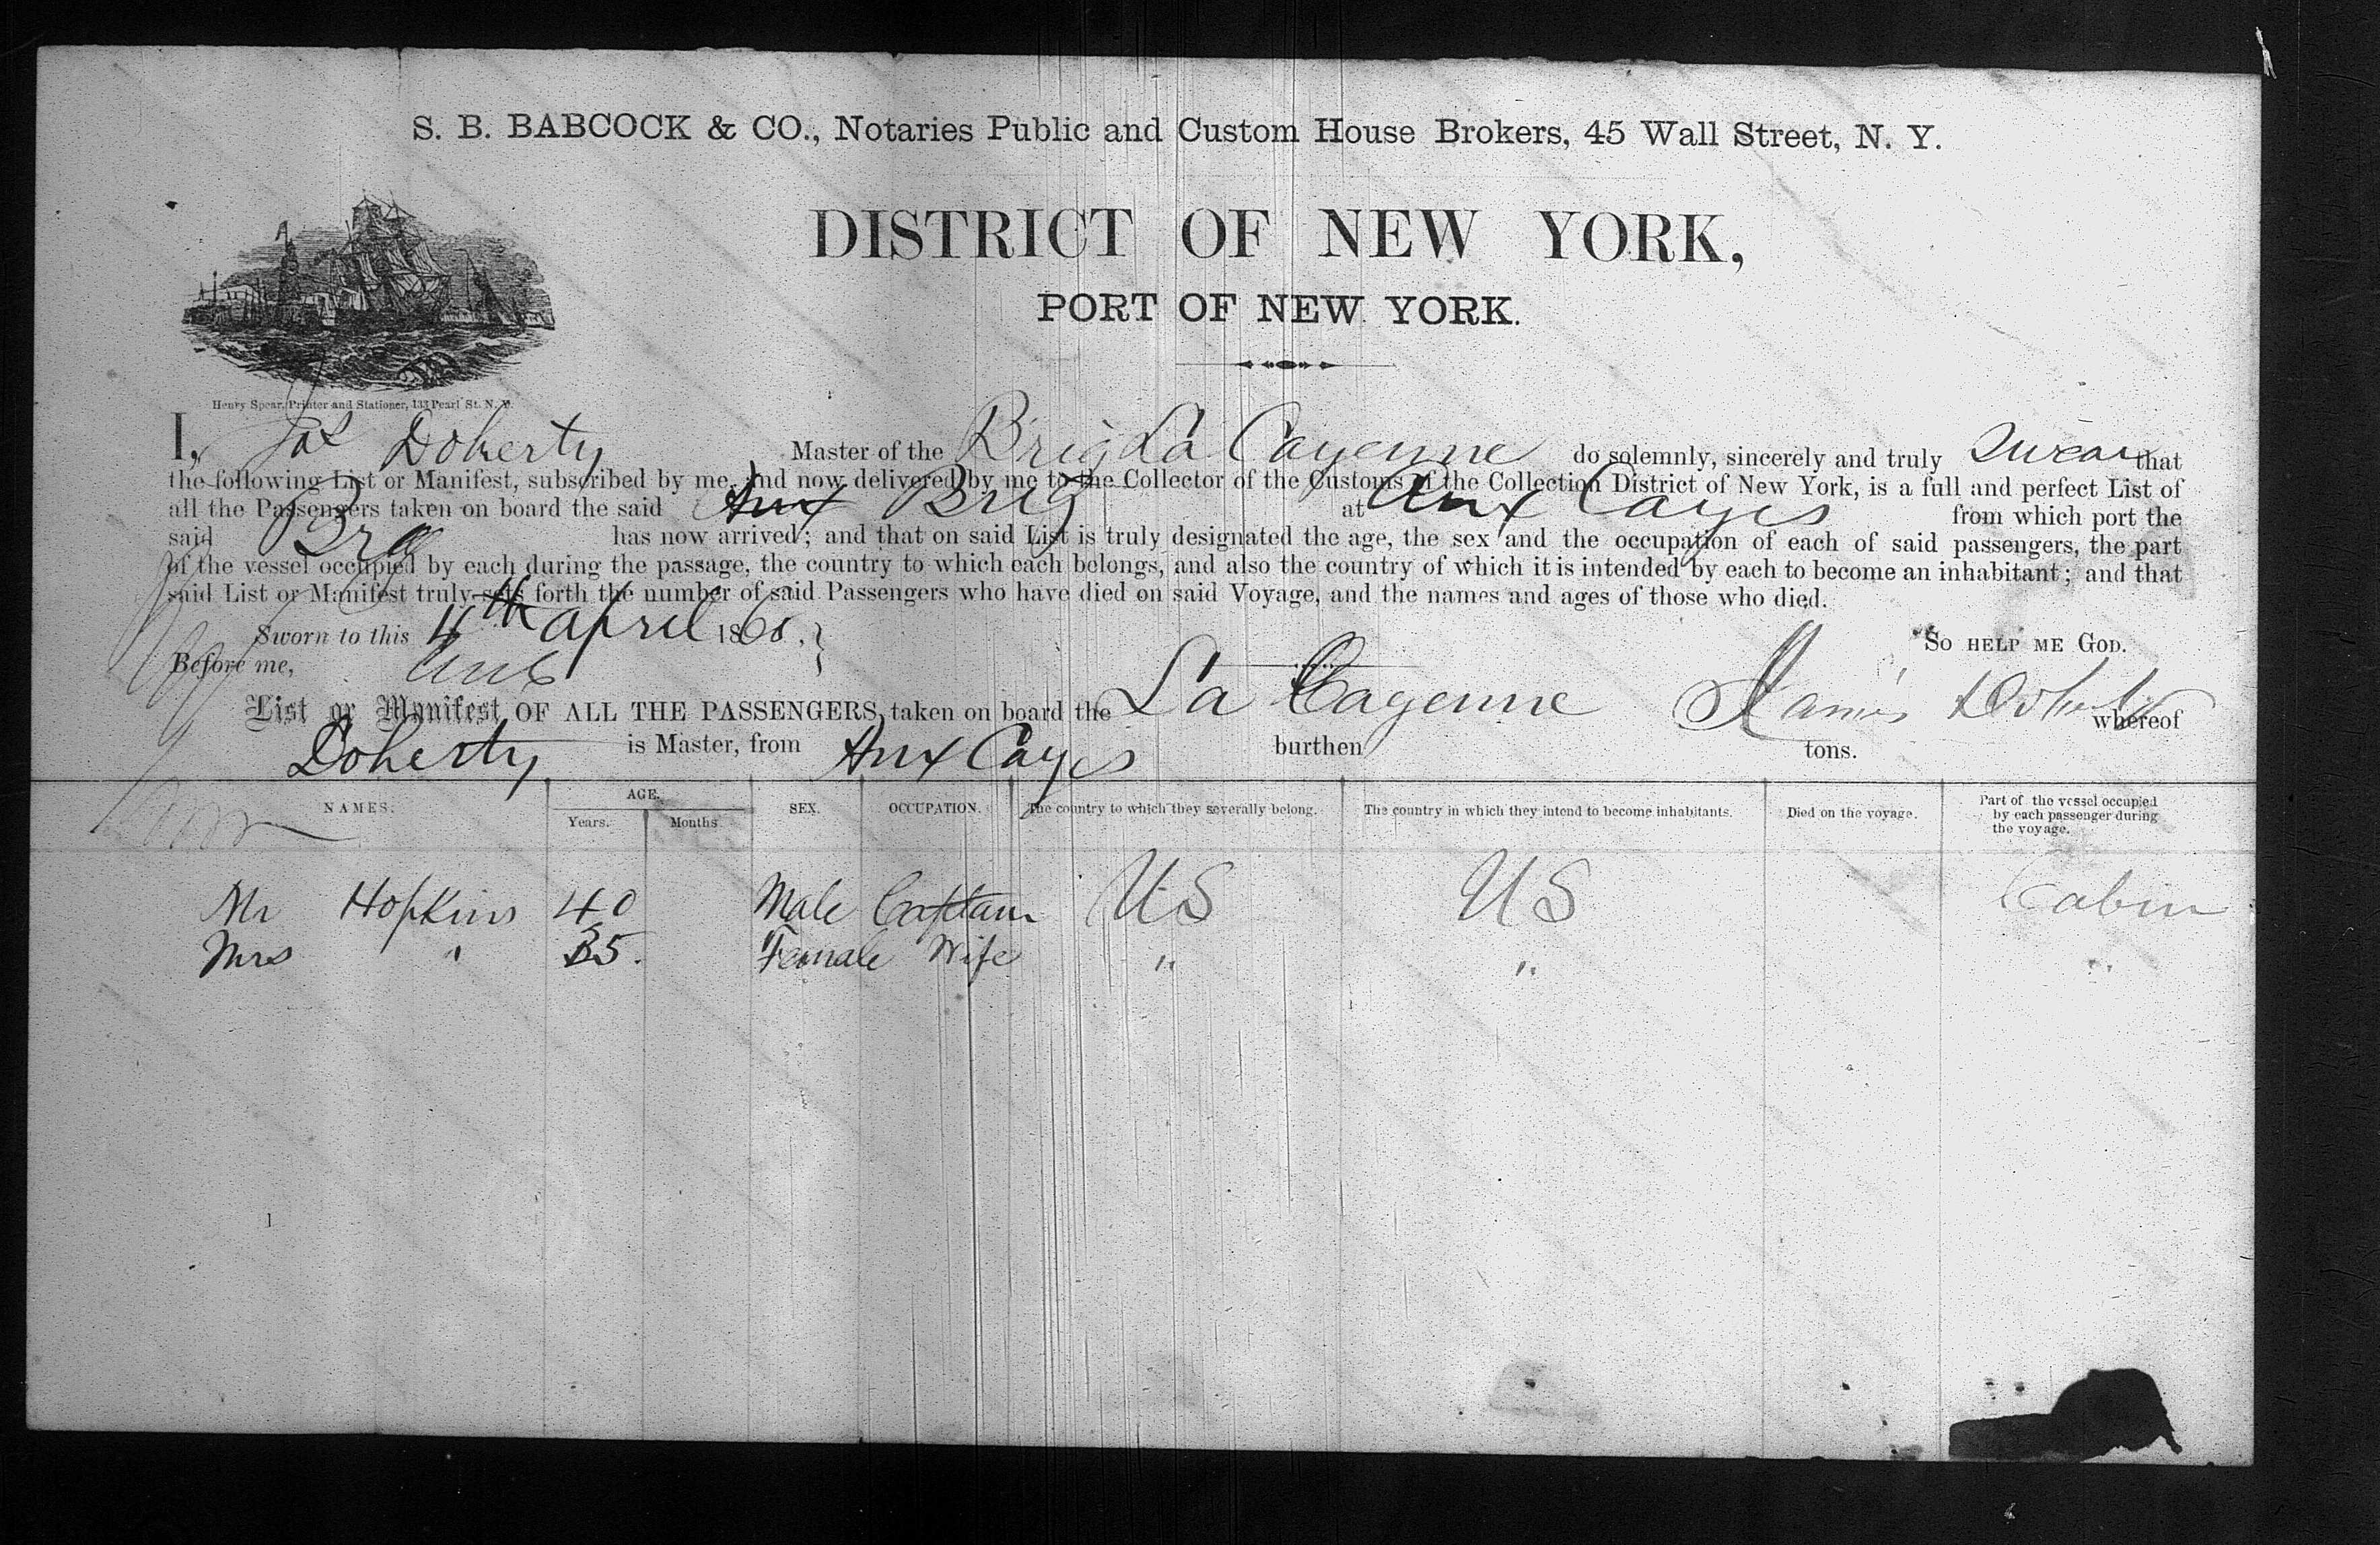 S. B. BABCOCK & CO., Notaries Public and Custom House Brokers, 45 Wall Street, N. Y.
DISTRICT OF NEW YORK,
PORT OF NEW YORK.
Henry Spear, Printer and Stationer, 133 Pearl St. N. Y.
I, Jas Doherty Master of the Brig La Cayenne do solemnly, sincerely and truly swear that
the following List or Manifest, subscribed by me, and now delivered by me to the Collector of the Customs of the Collection District of New York, is a full and perfect List of
all the Passengers taken on board the said Aux Brig at Aux Cayes from which port the
said Brg has now arrived; and that on said List is truly designated the age, the sex and the occupation of each of said passengers, the part
of the vessel occupied by each during the passage, the country to which each belongs, and also the country of which it is intended by each to become an inhabitant; and that
said List or Manifest truly sets forth the number of said Passengers who have died on said Voyage, and the names and ages of those who died.
Sworn to this 4th April 186 So HELP ME GOD.
Before me,
List or Manifest OF ALL THE PASSENGERS taken on board the La Cayenne James Doherty whereof
Doherty is Master, from Aux Cayes burthen tons.
NAMES. AGE. Years. Months SEX. OCCUPATION. The country to which they severally belong. The country in which they intend to become inhabitants. Died on the voyage. Part of the vessel occupied by each passenger during the voyage.
Mr Hopkins 40 Male Captain US US Cabin
Mrs " 35. Female Wife " " "